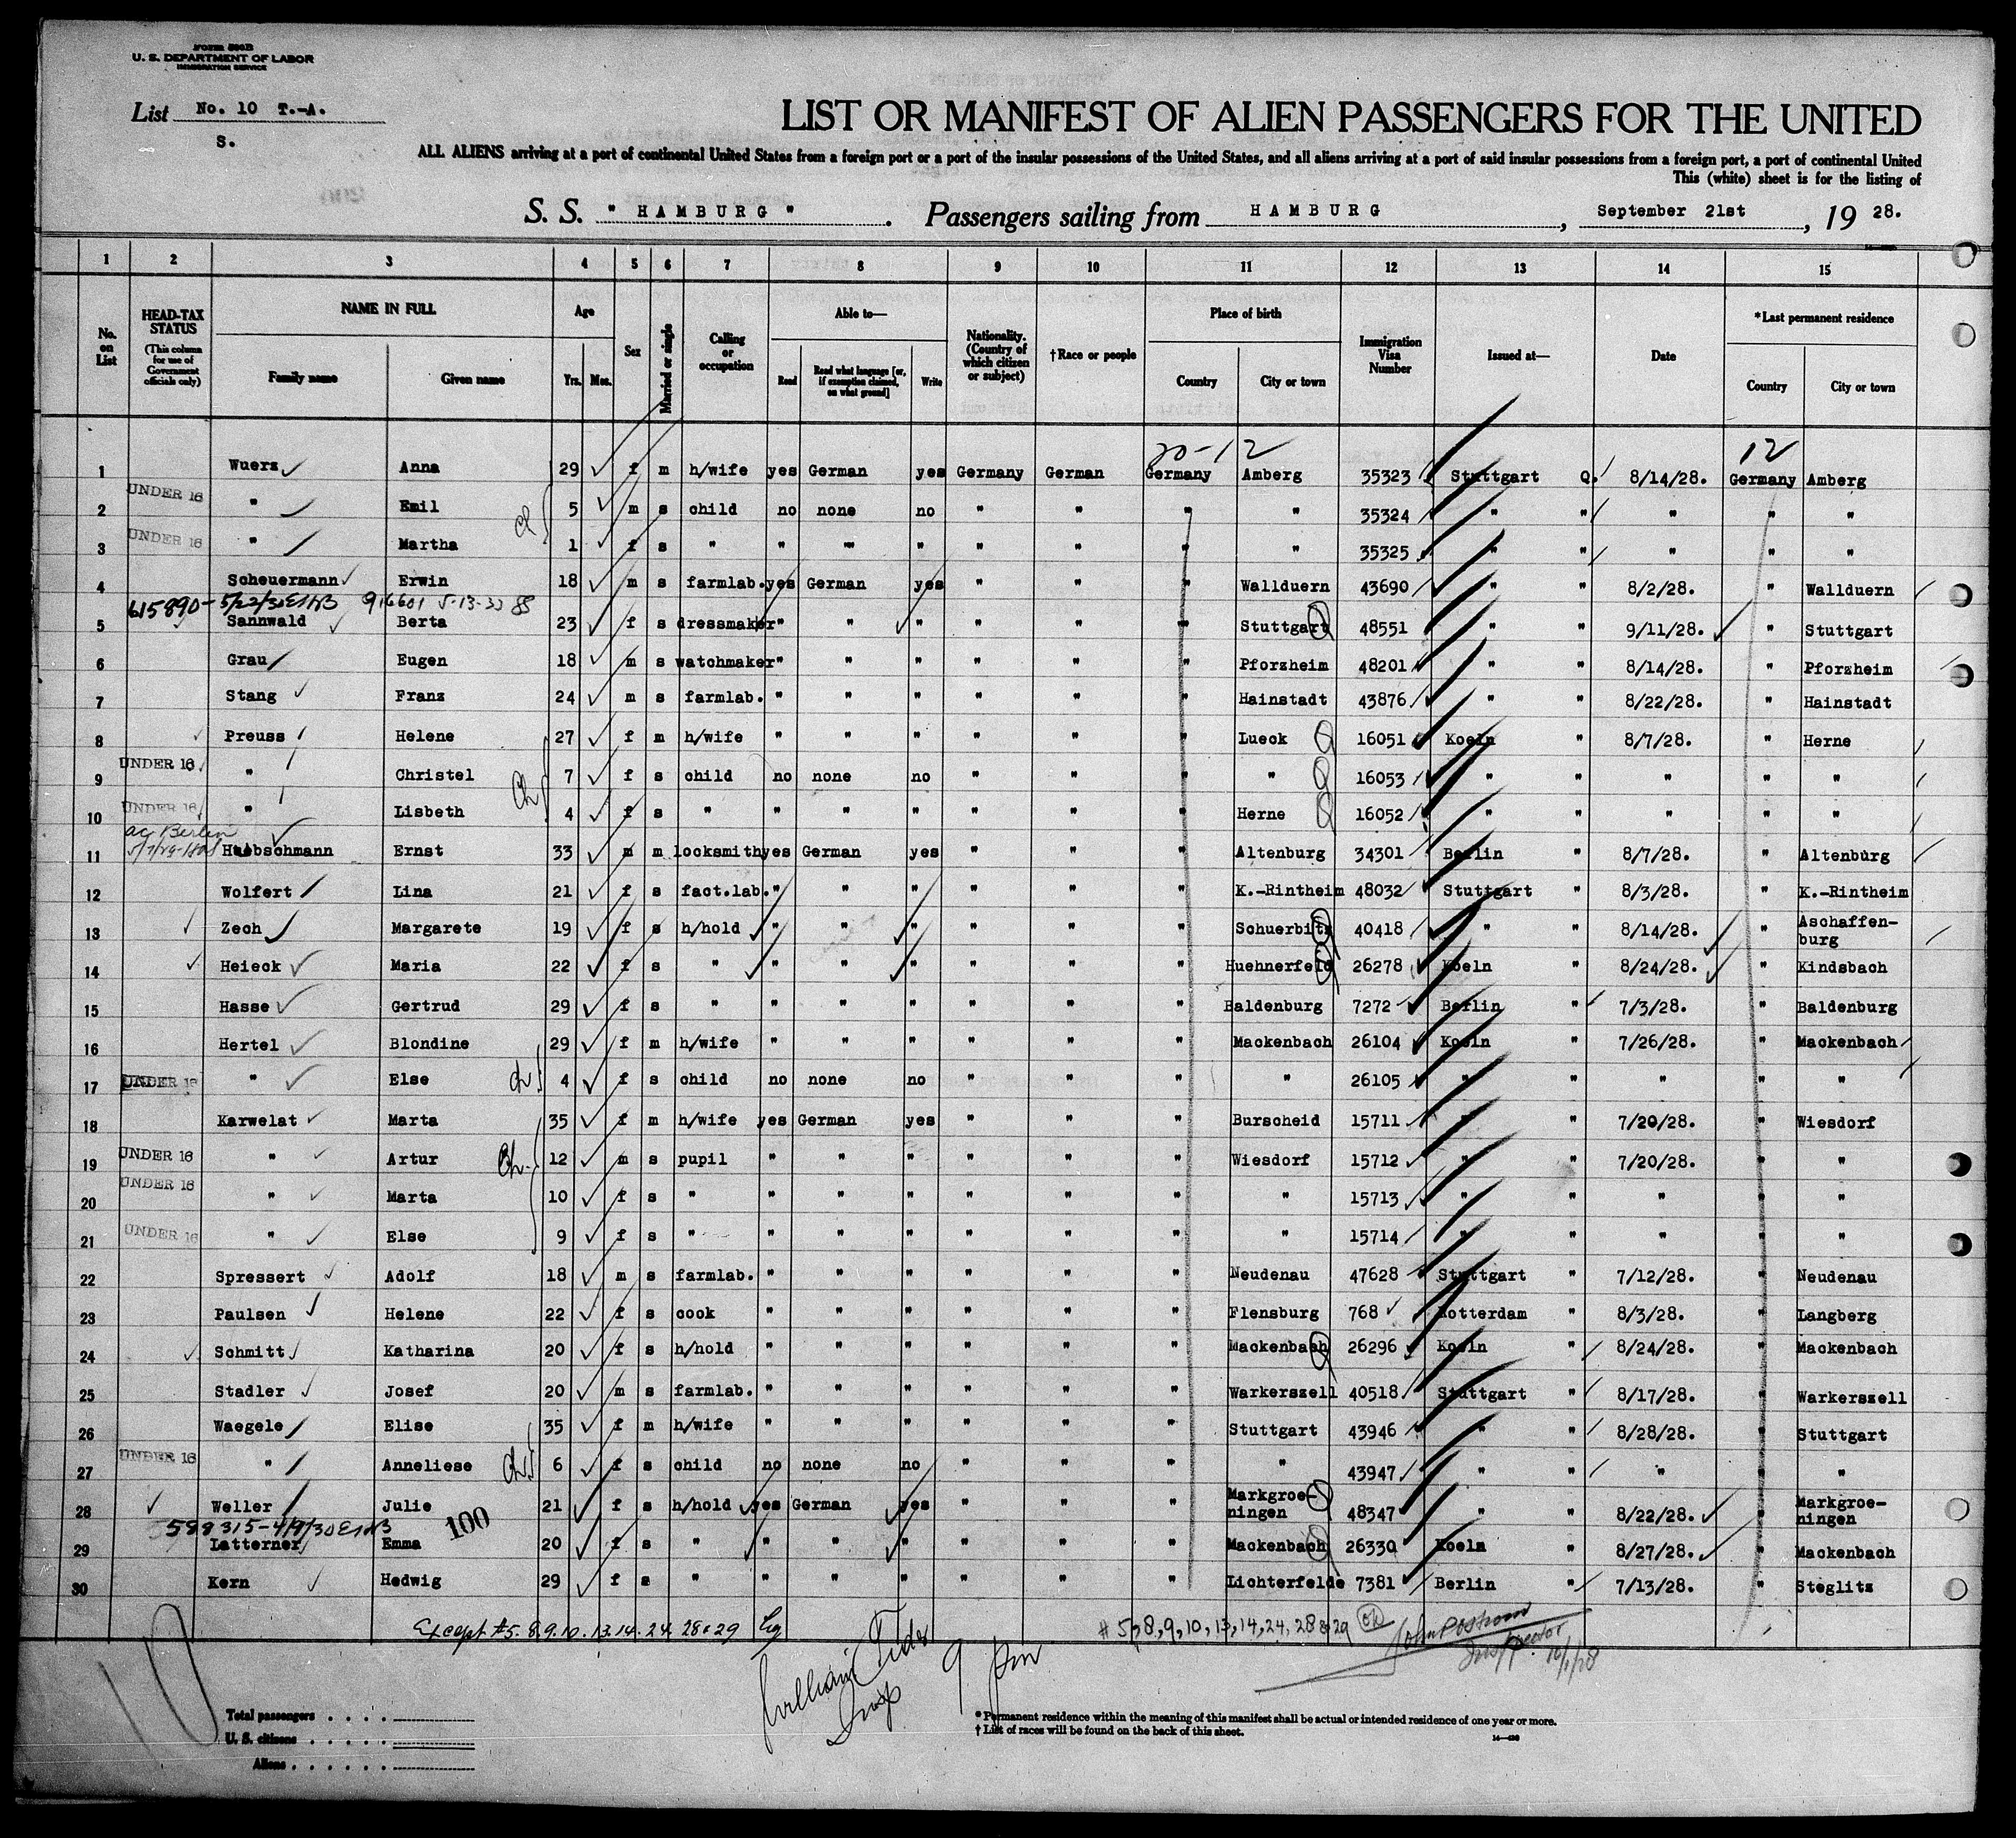 Form 500B
U. S. DEPARTMENT OF LABOR
IMMIGRATION SERVICE
List No. 10 T.-A.
S.
LIST OR MANIFEST OF ALIEN PASSENGERS FOR THE UNITED
ALL ALIENS arriving at a port of continental United States from a foreign port or a port of the insular possessions of the United States, and all aliens arriving at a port of said insular possessions from a foreign port, a port of continental United
This (white) sheet is for the listing of
S. S. " HAMBURG ". Passengers sailing from HAMBURG, September 21st, 19 28.
1 2 3 4 5 6 7 8 9 10 11 12 13 14 15
No. on List
HEAD-TAX STATUS (This column for use of Government officials only)
NAME IN FULL Family name Given name
Age Yrs. Mos.
Sex
Married or single
Calling or occupation
Able to— Read Read what language [or, if exemption claimed, on what ground] Write
Nationality. (Country of which citizen or subject)
†Race or people
Place of birth Country City or town
Immigration Visa Number
Issued at—
Date
*Last permanent residence Country City or town
20-12 12
1 Wuerz Anna 29 f m h/wife yes German yes Germany German Germany Amberg 35323 Stuttgart Q. 8/14/28. Germany Amberg
2 UNDER 16 " Emil 5 m s child no none no " " " " 35324 " " " " "
3 UNDER 16 " Martha 1 f s " " " " " " " " 35325 " " " " "
4 Scheuermann Erwin 18 m s farmlab. yes German yes " " " Wallduern 43690 " " 8/2/28. " Wallduern
615890- 5/22/30 916601 5-13-33
5 Sannwald Berta 23 f s dressmaker " " " " " " Stuttgart 48551 " " 9/11/28. " Stuttgart
6 Grau Eugen 18 m s watchmaker " " " " " " Pforzheim 48201 " " 8/14/28. " Pforzheim
7 Stang Franz 24 m s farmlab. " " " " " " Hainstadt 43876 " " 8/22/28. " Hainstadt
8 Preuss Helene 27 f m h/wife " " " " " " Lueck 16051 Koeln " 8/7/28. " Herne
9 UNDER 16 " Christel 7 f s child no none no " " " " 16053 " " " " "
10 UNDER 16 " Lisbeth 4 f s " " " " " " " Herne 16052 " " " " "
ac Berlin
11 Huebschmann Ernst 33 m m locksmith yes German yes " " " Altenburg 34301 Berlin " 8/7/28. " Altenburg
12 Wolfert Lina 21 f s fact.lab. " " " " " " K.-Rintheim 48032 Stuttgart " 8/3/28. " K.-Rintheim
13 Zech Margarete 19 f s h/hold " " " " " " Schuerbitz 40418 " " 8/14/28. " Aschaffen-
burg
14 Heieck Maria 22 f s " " " " " " " Huehnerfeld 26278 Koeln " 8/24/28. " Kindsbach
15 Hasse Gertrud 29 f s " " " " " " " Baldenburg 7272 Berlin " 7/3/28. " Baldenburg
16 Hertel Blondine 29 f m h/wife " " " " " " Mackenbach 26104 Koeln " 7/26/28. " Mackenbach
17 UNDER 16 " Else 4 f s child no none no " " " " 26105 " " " " "
18 Karwelat Marta 35 f m h/wife yes German yes " " " Burscheid 15711 " " 7/20/28. " Wiesdorf
19 UNDER 16 " Artur 12 m s pupil " " " " " " Wiesdorf 15712 " " 7/20/28. " "
20 UNDER 16 " Marta 10 f s " " " " " " " " 15713 " " " " "
21 UNDER 16 " Else 9 f s " " " " " " " " 15714 " " " " "
22 Spressert Adolf 18 m s farmlab. " " " " " " Neudenau 47628 Stuttgart " 7/12/28. " Neudenau
23 Paulsen Helene 22 f s cook " " " " " " Flensburg 768 Rotterdam " 8/3/28. " Langberg
24 Schmitt Katharina 20 f s h/hold " " " " " " Mackenbach 26296 Koeln " 8/24/28. " Mackenbach
25 Stadler Josef 20 m s farmlab. " " " " " " Warkerszell 40518 Stuttgart " 8/17/28. " Warkerszell
26 Waegele Elise 35 f m h/wife " " " " " " Stuttgart 43946 " " 8/28/28. " Stuttgart
27 UNDER 16 " Anneliese 6 f s child no none no " " " " 43947 " " " " "
28 Weller Julie 21 f s h/hold yes German yes " " " Markgroe-
ningen 48347 " " 8/22/28. " Markgroe-
ningen
588315-4/9/30 100
29 Latterner Emma 20 f s " " " " " " " Mackenbach 26330 Koeln " 8/27/28. " Mackenbach
30 Kern Hedwig 29 f s " " " " " " " Lichterfelde 7381 Berlin " 7/13/28. " Steglitz
Except #5. 8. 9. 10. 13. 14. 24. 28 & 29
# 5, 8, 9, 10, 13, 14, 24, 28 & 29 ok
Inspector 10/1/28
William
Insp 9 pm
10
Total passengers
U. S. citizens
Aliens
* Permanent residence within the meaning of this manifest shall be actual or intended residence of one year or more.
† List of races will be found on the back of this sheet.